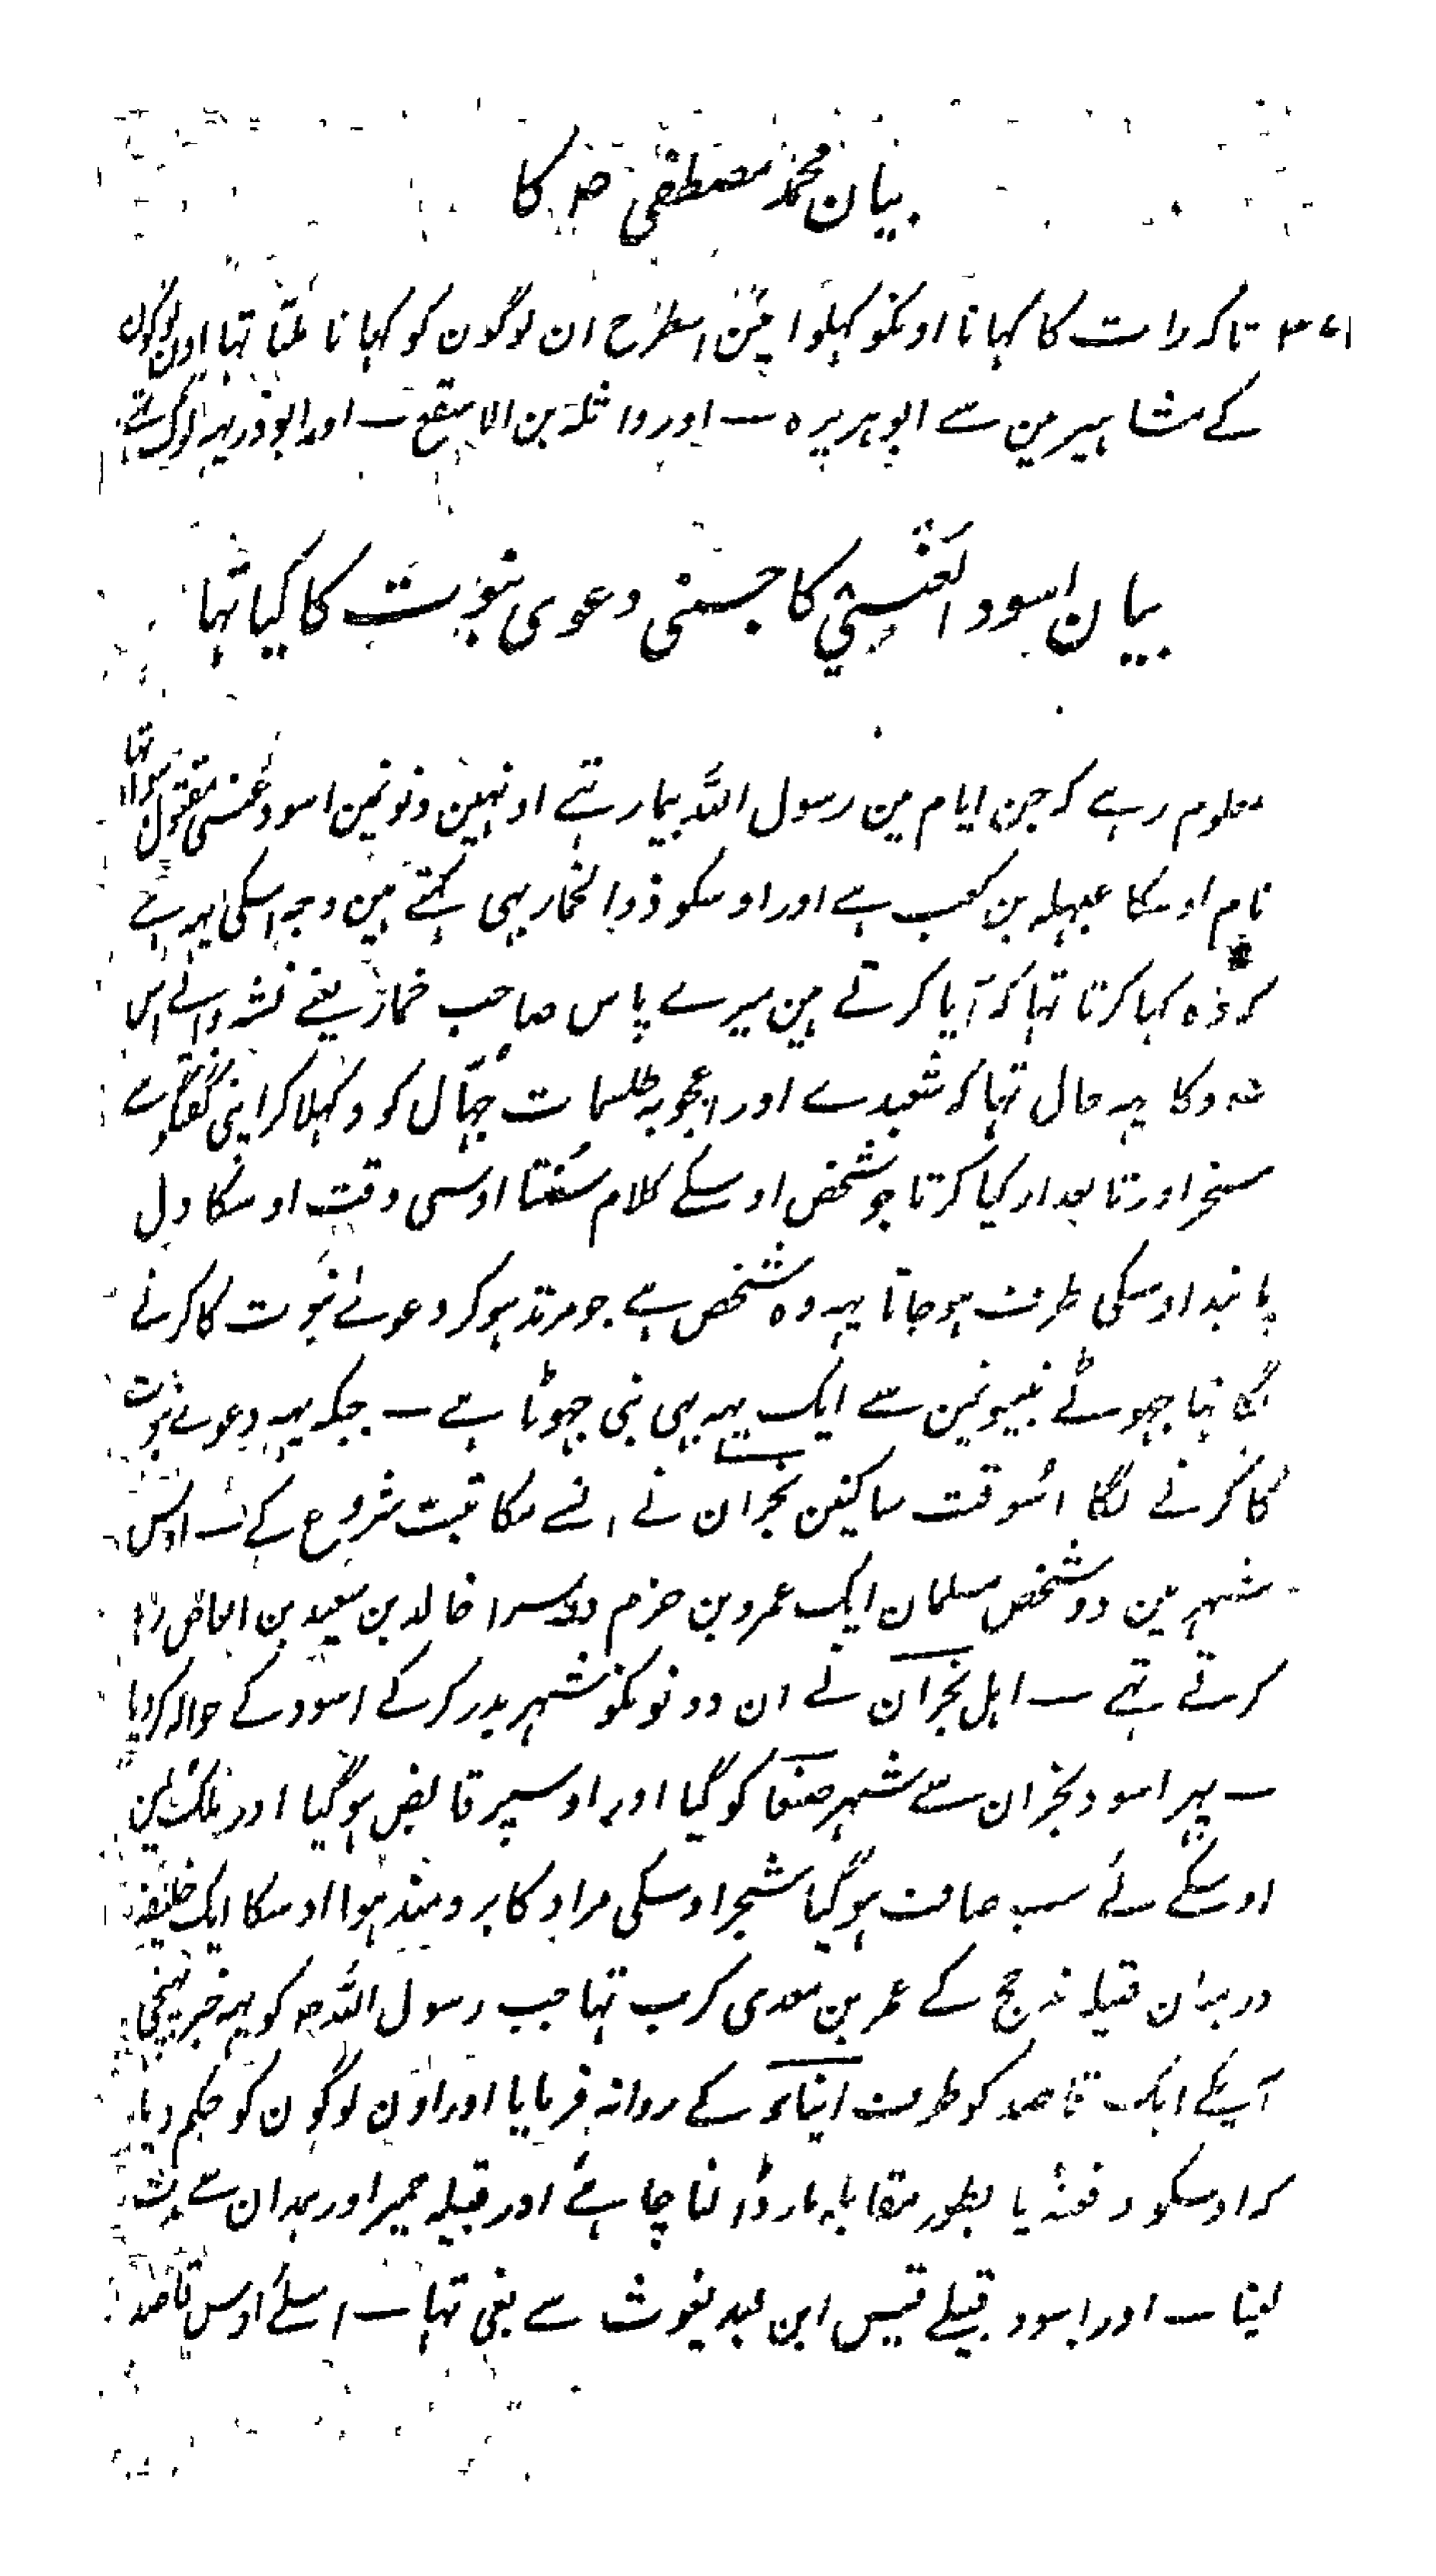 بیان محمد مصطفی صہ کا
تاکہ رات کا کہانا اونکو کہلوا ئین اسطرح ان لوگون کو کہانا ملتا تہا اون لوگون
کے مشاہیر مین سے ابو ہریرہ ــ اور واثلہ بن الاسقع ــ اور ابو ذر یہہ لوگ تہے
بیان اسود العنسی کا جسنی دعوی نبوت کا کیا تہا
معلوم رہے کہ جن ایام مین رسول اللہ بیمار تہے اونہین دنونمین اسود عنسی مقتول ہوا تہا
نام اوسکا عبہلہ بن کعب ہے اور اوسکو ذو الخمار بہی کہتے ہین وجہ اسکی یہہ ہے
کہ وہ کہا کرتا تہا کہ آیا کرتے ہین میرے پاس صاحب خمار یعنے نشہ والے اس
اسود کا یہہ حال تہا کہ شعبدے اور اعجوبہ طلسمات جہّال کو دکہلا کر اپنی گفتگو سے
مسخر اور تابعدار کیا کرتا جو شخص اوسکے کلام سُنتا اوسی وقت اوسکا دل
پابند اوسکی طرف ہو جاتا یہہ وہ شخص ہے جو مرتد ہو کر دعوئے نبوت کا کرنے
لگا تہا جہوٹے نبیونمین سے ایک یہہ بہی نبی جہوٹا ہے ــ جبکہ یہہ دعوے نبوت
کا کرنے لگا اُسوقت ساکنین نجران نے اسنے مکاتبت شروع کے ــ اوس
شہر مین دو شخص مسلمان ایک عمرو بن حزم دوسرا خالد بن سعید بن العاص رہا
کرتے تہے ــ اہل نجران نے ان دونونکو شہر بدر کر کے اسود کے حوالہ کر دیا
ــ پہر اسود نجران سے شہر صنعا کو گیا اور اوسپر قابض ہو گیا اور ملک یمن
اوسکے لئے سب صاف ہو گیا شجر اوسکی مراد کا برومند ہوا اوسکا ایک خلیفہ
درمیان قبیلہ مذحج کے عمر بن معدی کرب تہا جب رسول اللہ صہ کو یہہ خبر پہنچی
آپنے ایک قاصد کو طرف ابناء کے روانہ فرمایا اور اون لوگون کو حکم دیا
کہ اوسکو دفعۃً یا بطور مقابلہ مار ڈالنا چاہئے اور قبیلہ حمیر اور ہمدان سے مدد
لینا ــ اور اسود قبیلے قیس ابن عبد یغوث سے بغی تہا ــ اسلئے اوس قاصد